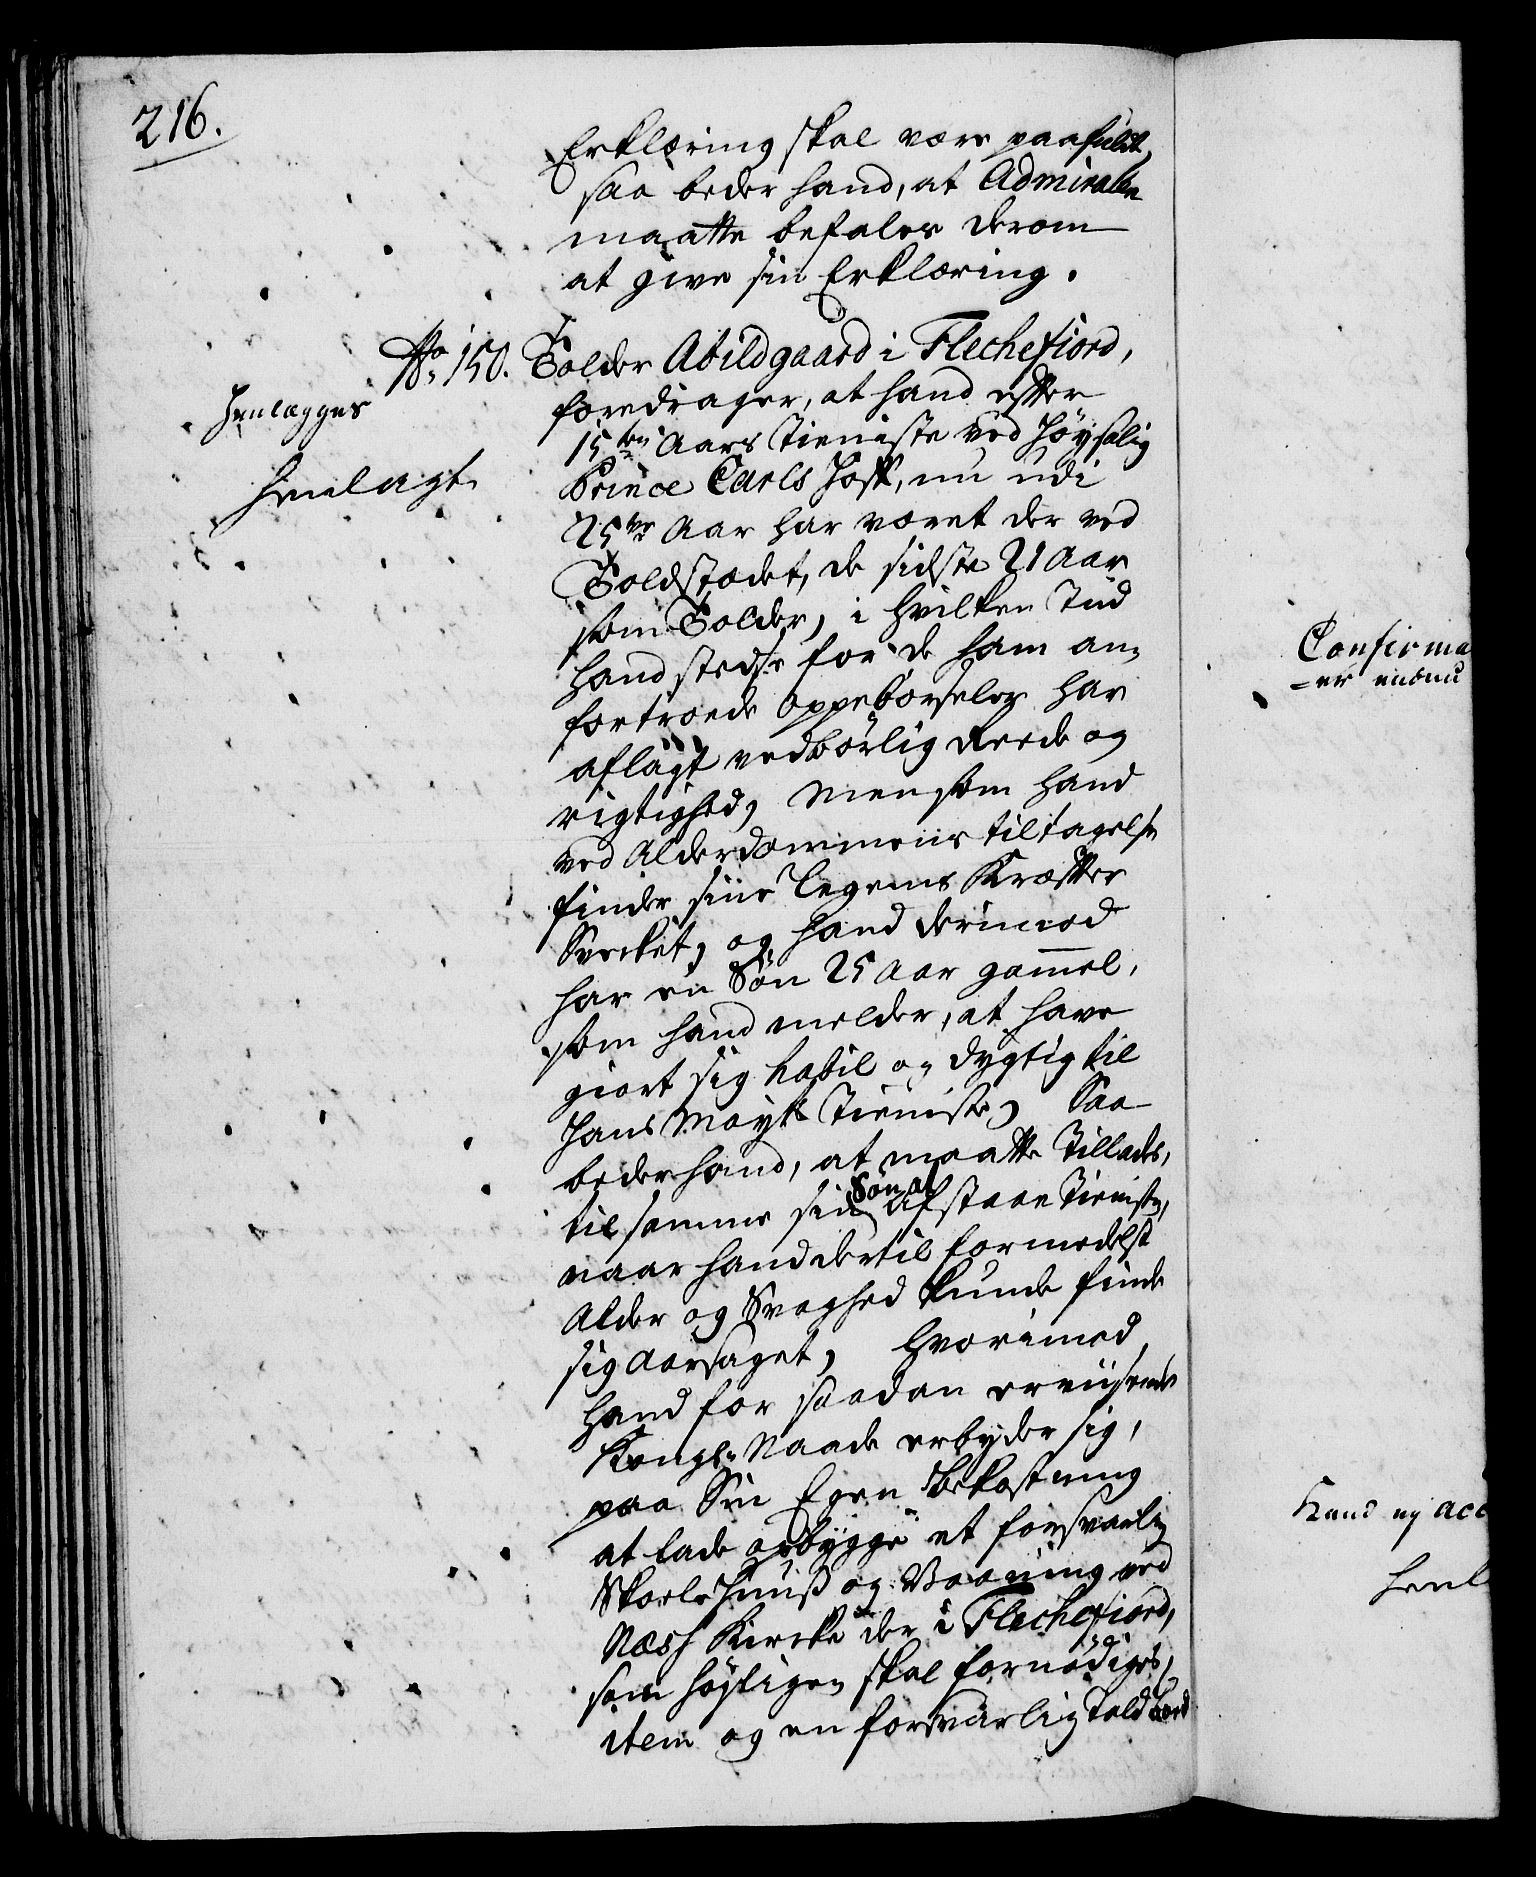 216.
Erklæring skal være paafuldt,
saa beder hand, at Admiralen
maatte befales derom
at give sin Erklæring.
No. 150. Tolder Abildgaard i Flechefiord,
Henlægges
foredrager, at hand efter
15ten Aars Tieniste ved Høysalig
Henlagt.
Prince Carls Hoff, nu udi
25ve Aar har været der ved
Toldstædet, de sidste 21 Aar
som Tolder, i hvilken Tiid
hand stedse for de ham an¬
fortroede Oppebørseler har
aflagt vedbørlig Reede og
rigtighed, Men som hand
ved Alderdommens tiltagelse
finder sine Legems Kræffter
Svecket, og hand derimod
har en Søn 25 Aar gammel,
som hand melder, at have
giort sig habil og dygtig til
Hans Mayts Tieniste, Saa
beder hand, at maatte Tillades,
til samme sin Søn at afstaae Tienisten,
naar hand dertil formedelst
Alder og Svaghed kunde finde
sig aarsaget, Hvorimod
hand for saadan erviisende
Kongl. Naade erbyder sig,
paa Sin Egen Bekostning
at lade opbygge et forsvarlig
Skole Huuss og Vaaning ved
Næss Kirke der i Flechefiord,
som høyligen skal fornødiges,
item og en forsvarlig Told Bod
Confirma
er endnu
Kand ey acc
Henl